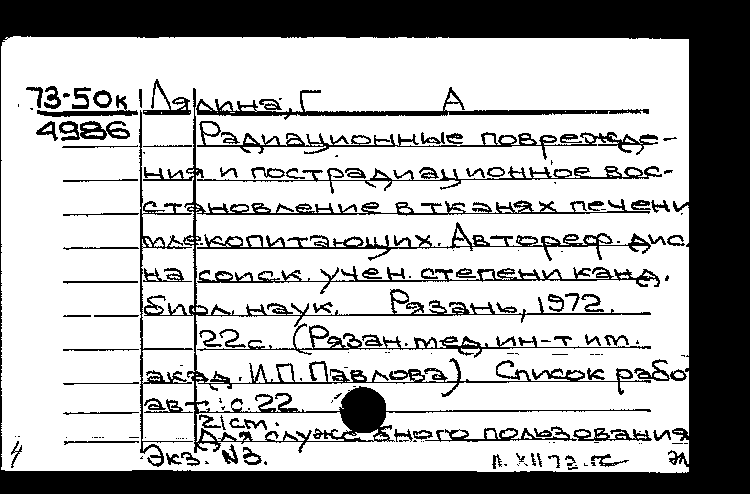 73-50к Лялина, Г А
4986 Радиационные поврежде-
ния и пострадиационное вос-
становление в тканях печени
млекопитающих. Автореф. дис.
на соиск. учен. степени канд.
биол. наук. Рязань, 1972.
22с. (Рязан. мед. ин-т им.
акад. И.П. Павлова). Список рабо
авт.: с. 22
2 см.
Для служебного пользования
Экз. №3.